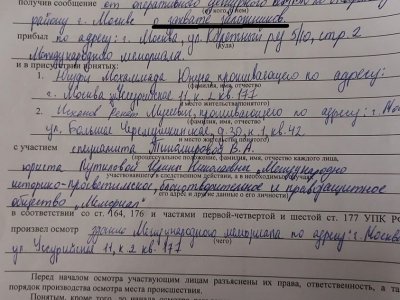 получив сообщение от оперативного дежурного
(от кого, о чем)
району г. Москве захвате заложников
прибыл по адресу: г. Москва, ул. Каретный ряд 5/10, стр. 2
(куда)
Международного мемориала.
и в присутствии понятых:
1. Юнуса проживающего по адресу:
(фамилия, имя, отчество
г. Москва Уссурийская 11, к. 2 кв. 177
и место жительства понятого)
2. проживающего по адресу: г. Мос
(фамилия, имя, отчество
ул. Большая Черемушкинская, д. 30, к. 1, кв. 42
и место жительства понятого)
с участием специалиста Тихомирова В. А.
(процессуальное положение, фамилия, имя, отчество каждого лица,
юриста Николаевны „Международно
участвовавшего в следственном действии, а в необходимых случаях
историко-просветительское, благотворительное и правозащитное
его адрес и другие данные о его личности)
общество „Мемориал"
в соответствии со ст. 164, 176 и частями первой-четвертой и шестой ст. 177 УПК РФ
произвел осмотр здания Международного мемориала по адресу: г. Москва
(чего)
ул Уссурийская 11, к 2 кв. 177
Перед началом осмотра участвующим лицам разъяснены их права, ответственность, а та
порядок производства осмотра места происшествия.
Понятым, кроме того, до начала осмотра